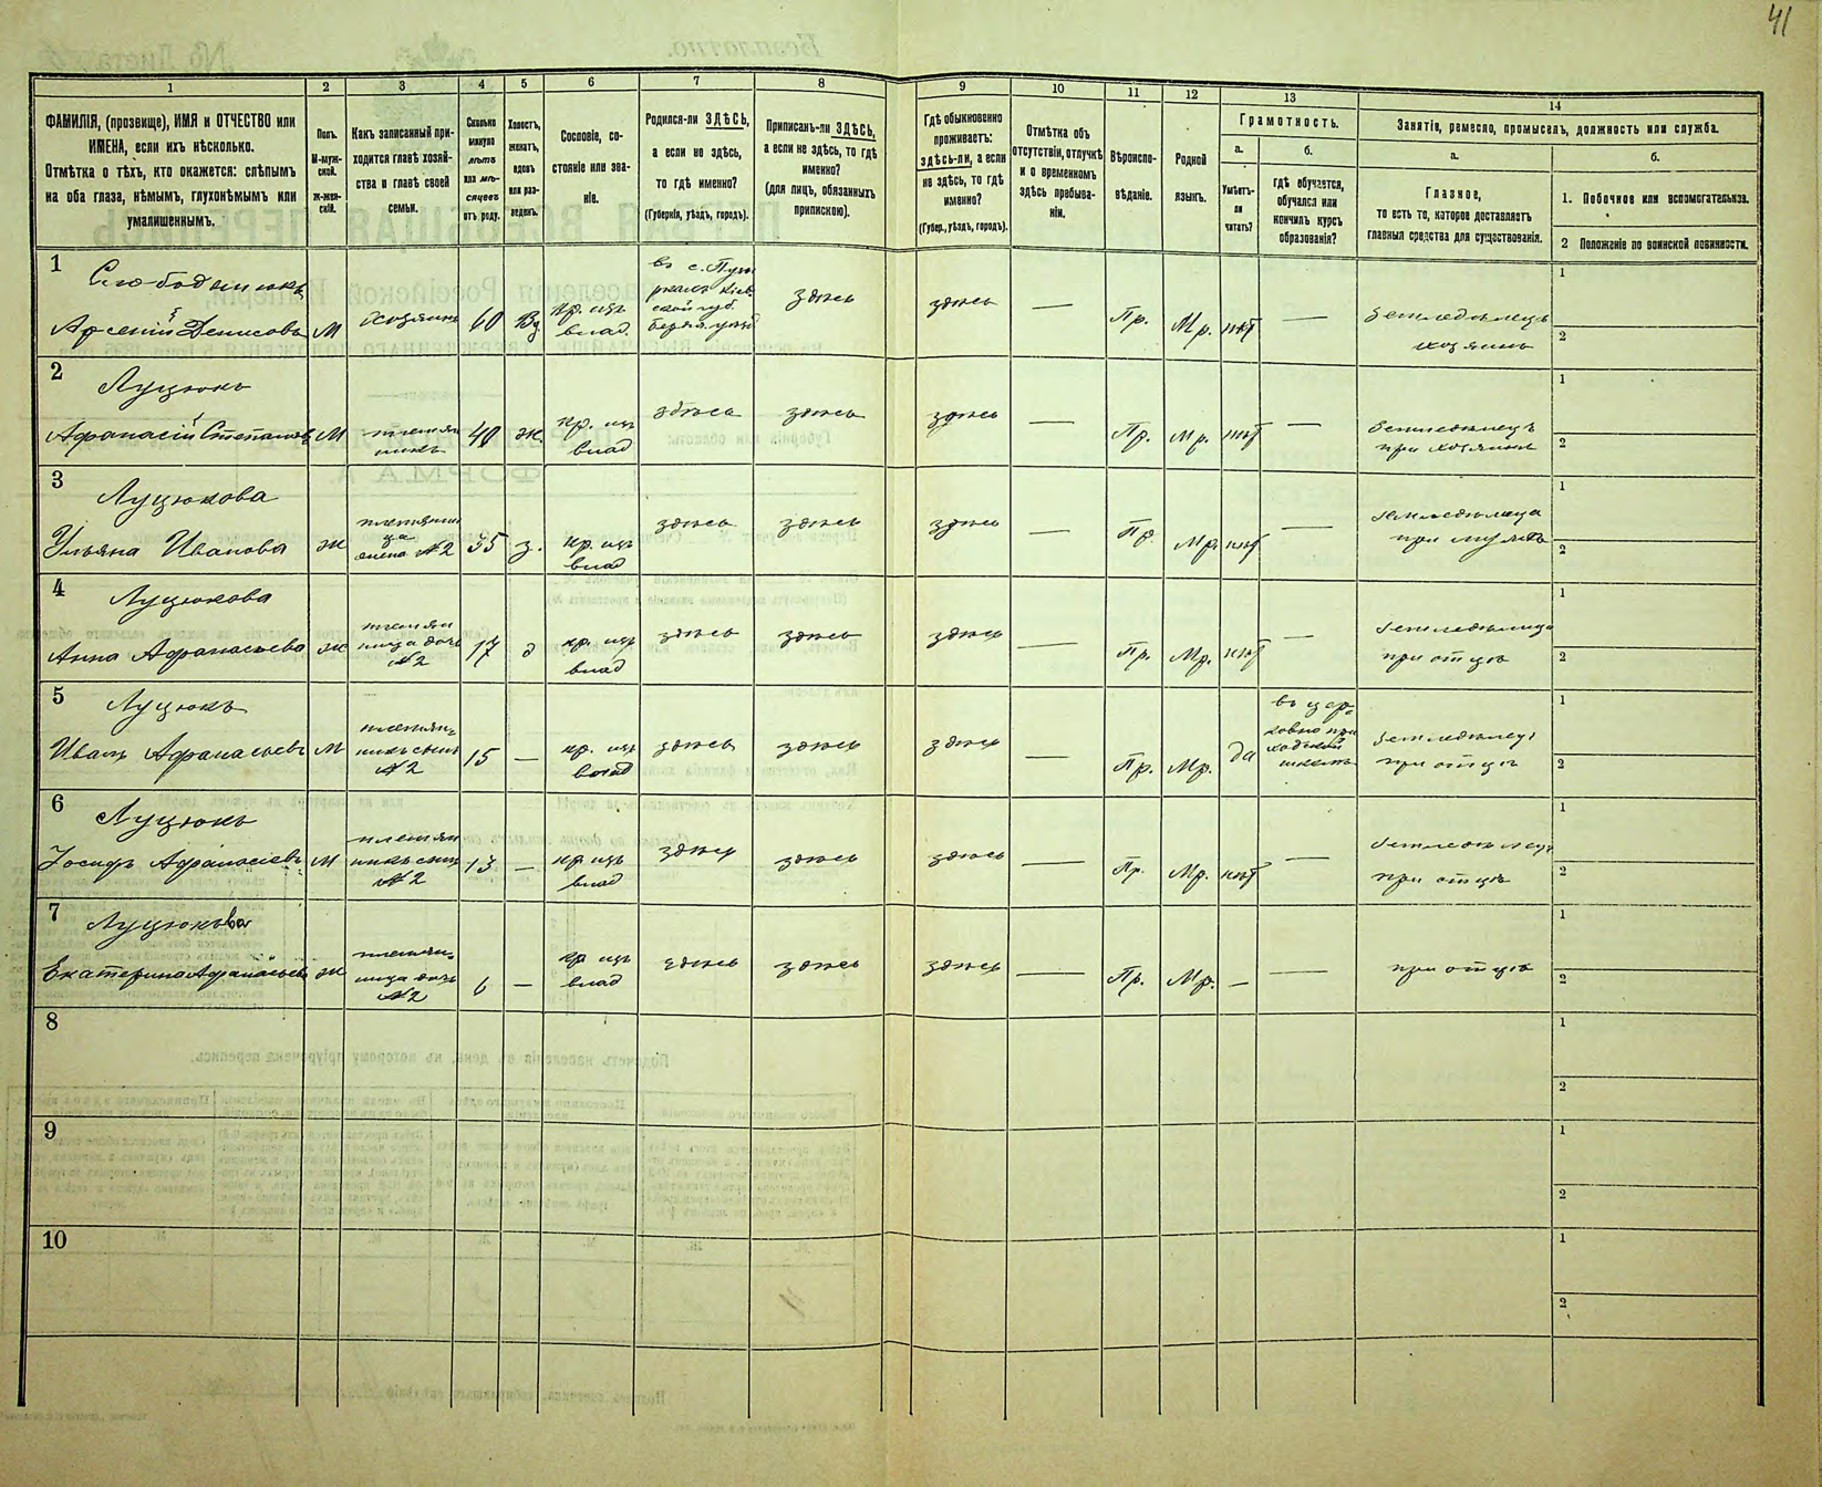 41
1 2 3 4 5 6 7 8 9 10 11 12 13 14
ФАМИЛІЯ, (прозвище), ИМЯ и ОТЧЕСТВО или
ИМЕНА, если ихъ нѣсколько.
Отмѣтка о тѣхъ, кто окажется: слѣпымъ
на оба глаза, нѣмымъ, глухонѣмымъ или
умалишеннымъ.
Полъ.
М-муж-
ской.
Ж-жен-
скій.
Какъ записанный при-
ходится главѣ хозяй-
ства и главѣ своей
семьи.
Сколько
минуло
лѣтъ
или мѣ-
сяцевъ
отъ роду.
Холостъ,
женатъ,
вдовъ
или раз-
веденъ.
Сословіе, со-
стояніе или зва-
ніе.
Родился-ли ЗДѢСЬ,
а если не здѣсь,
то гдѣ именно?
(Губернія, уѣздъ, городъ).
Приписанъ-ли ЗДѢСЬ,
а если не здѣсь, то гдѣ
именно?
(для лицъ, обязанныхъ
припискою).
Гдѣ обыкновенно
проживаетъ:
здѣсь-ли, а если
не здѣсь, то гдѣ
именно?
(Губер., уѣздъ, городъ).
Отмѣтка объ
отсутствіи, отлучкѣ
и о временномъ
здѣсь пребыва-
ніи.
Вѣроиспо-
вѣданіе.
Родной
языкъ.
Грамотность.
а.
Умѣетъ-
ли
читать?
б.
гдѣ обучается,
обучался или
кончилъ курсъ
образованія?
Занятіе, ремесло, промыселъ, должность или служба.
а.
Главное,
то есть то, которое доставляетъ
главныя средства для существованія.
б.
1. Побочное или вспомогательное.
2 Положеніе по воинской повинности.
1
Арсеній Денисовъ М хозяинъ 60 Вд кр. изъ влад. въ с. здѣсь здѣсь — Пр. Мр. нѣт — Земледѣлецъ хозяинъ 1 2
2 Луцюкъ
Афанасій Степановъ М племян никъ 40 ж. кр. изъ влад здѣсь здѣсь здѣсь — Пр. Мр. нѣт — Земледѣлецъ при хозяинѣ 1 2
3 Луцюкова
Ульяна Иванова ж племянни ца жена №2 35 з. кр. изъ влад здѣсь здѣсь здѣсь — Пр. Мр. нѣт — земледѣлица при мужѣ 1 2
4 Луцюкова
Анна Афанасьева ж племян ница дочь №2 17 д кр. изъ влад здѣсь здѣсь здѣсь — Пр. Мр. нѣт — земледѣлица при отцѣ 1 2
5 Луцюкъ
Иванъ Афанасьевъ М племян- никъ сынъ №2 15 — кр. изъ влад здѣсь здѣсь здѣсь — Пр. Мр. да въ цер- ковно при ходской школѣ Земледѣлецъ при отцѣ 1 2
6 Луцюкъ
Іосифъ Афанасіевъ М племян никъ сынъ №2 13 — кр изъ влад здѣсь здѣсь здѣсь — Пр. Мр. нѣт — Земледѣлецъ при отцѣ 1 2
7 Луцюкова
Екатерина Афанасьева ж племян- ница дочь №2 6 — кр изъ влад здѣсь здѣсь здѣсь — Пр. Мр. — — при отцѣ 1 2
8 1 2
9 1 2
10 1 2